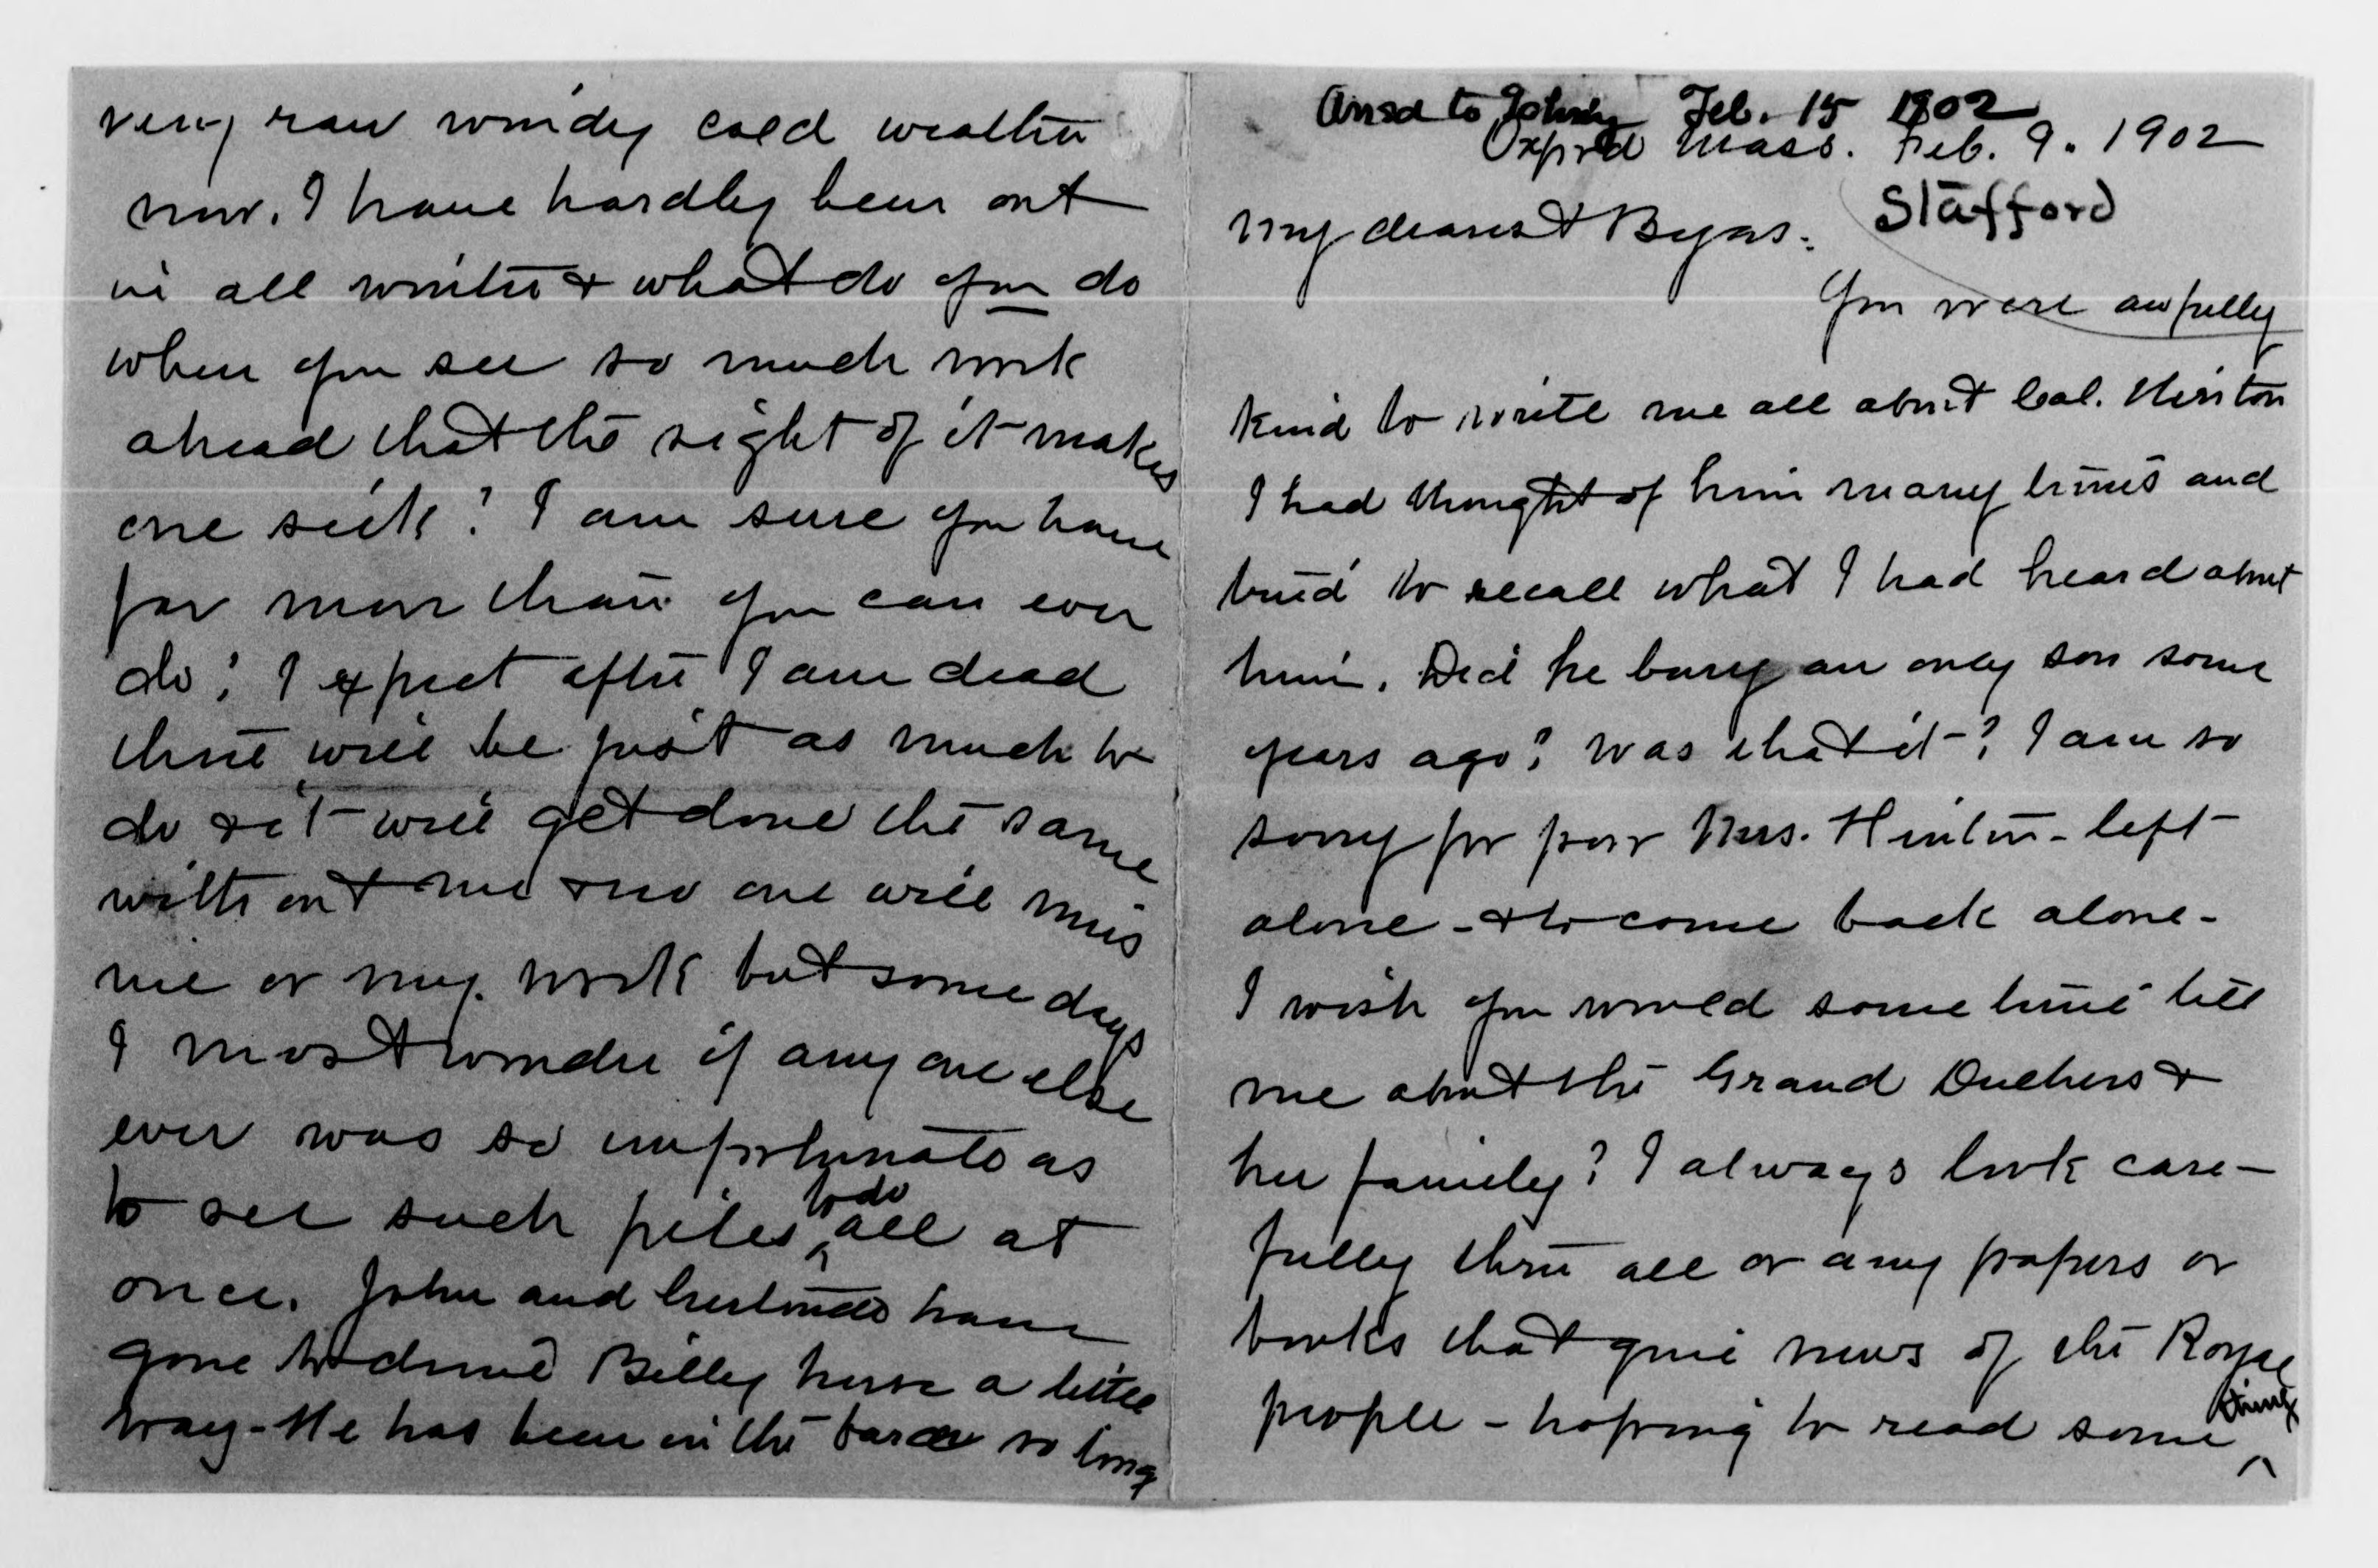 Ansd to Johnny Feb. 15 1902
Oxford Mass. Feb. 9. 1902
Stafford
My dearest Byas.
You were awfully
kind to write me all about Col. Hinton
I had thought of him many times and
tried to recall what I had heard about
him. Did he bury an only son some
years ago? Was that it? I am so
sorry for poor Mrs. Hinton - left
alone - & to come back alone -
I wish you would some time tell
me about the Grand Duchess &
her family? I always look care-
fully thru all or any papers or
books that give news of the Royal
people - hoping to read some thing
very raw windy cold weather
now. I have hardly been out
in all winter & what do you do
when you see so much work
ahead that the sight of it makes
one sick? I am sure you have
far more than you can ever
do? I expect after I am dead
there will be just as much to
do & it will get done the same
without me & no one will miss
me or my work but some days
I most wonder if any one else
ever was so unfortunate as
to see such piles to do all at
once. John and Gertrude have
gone to drive Billy horse a little
way - He has been in the barn so long